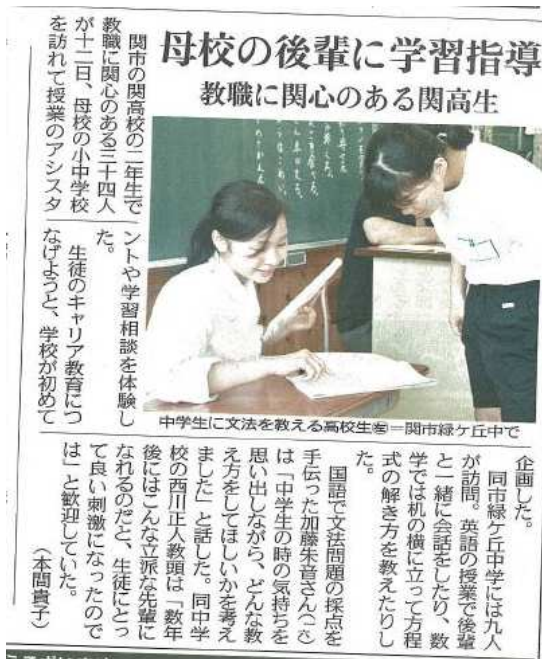 母校の後輩に学習指導
教職に関心のある関高生
関市の関高校の二年生で
教職に関心のある三十四人
が十二日、母校の小中学校
を訪れて授業のアシスタ
ントや学習相談を体験し
た。
生徒のキャリア教育につ
なげようと、学校が初めて
中学生に文法を教える高校生㊧＝関市緑ケ丘中で
企画した。
同市緑ケ丘中学には九人
が訪問。英語の授業で後輩
と一緒に会話をしたり、数
学では机の横に立って方程
式の解き方を教えたりし
た。
国語で文法問題の採点を
手伝った加藤朱音さん(一六)
は「中学生の時の気持ちを
思い出しながら、どんな教
え方をしてほしいかを考え
ました」と話した。同中学
校の西川正人教頭は「数年
後にはこんな立派な先輩に
なれるのだと、生徒にとっ
て良い刺激になったので
は」と歓迎していた。
(本間貴子)